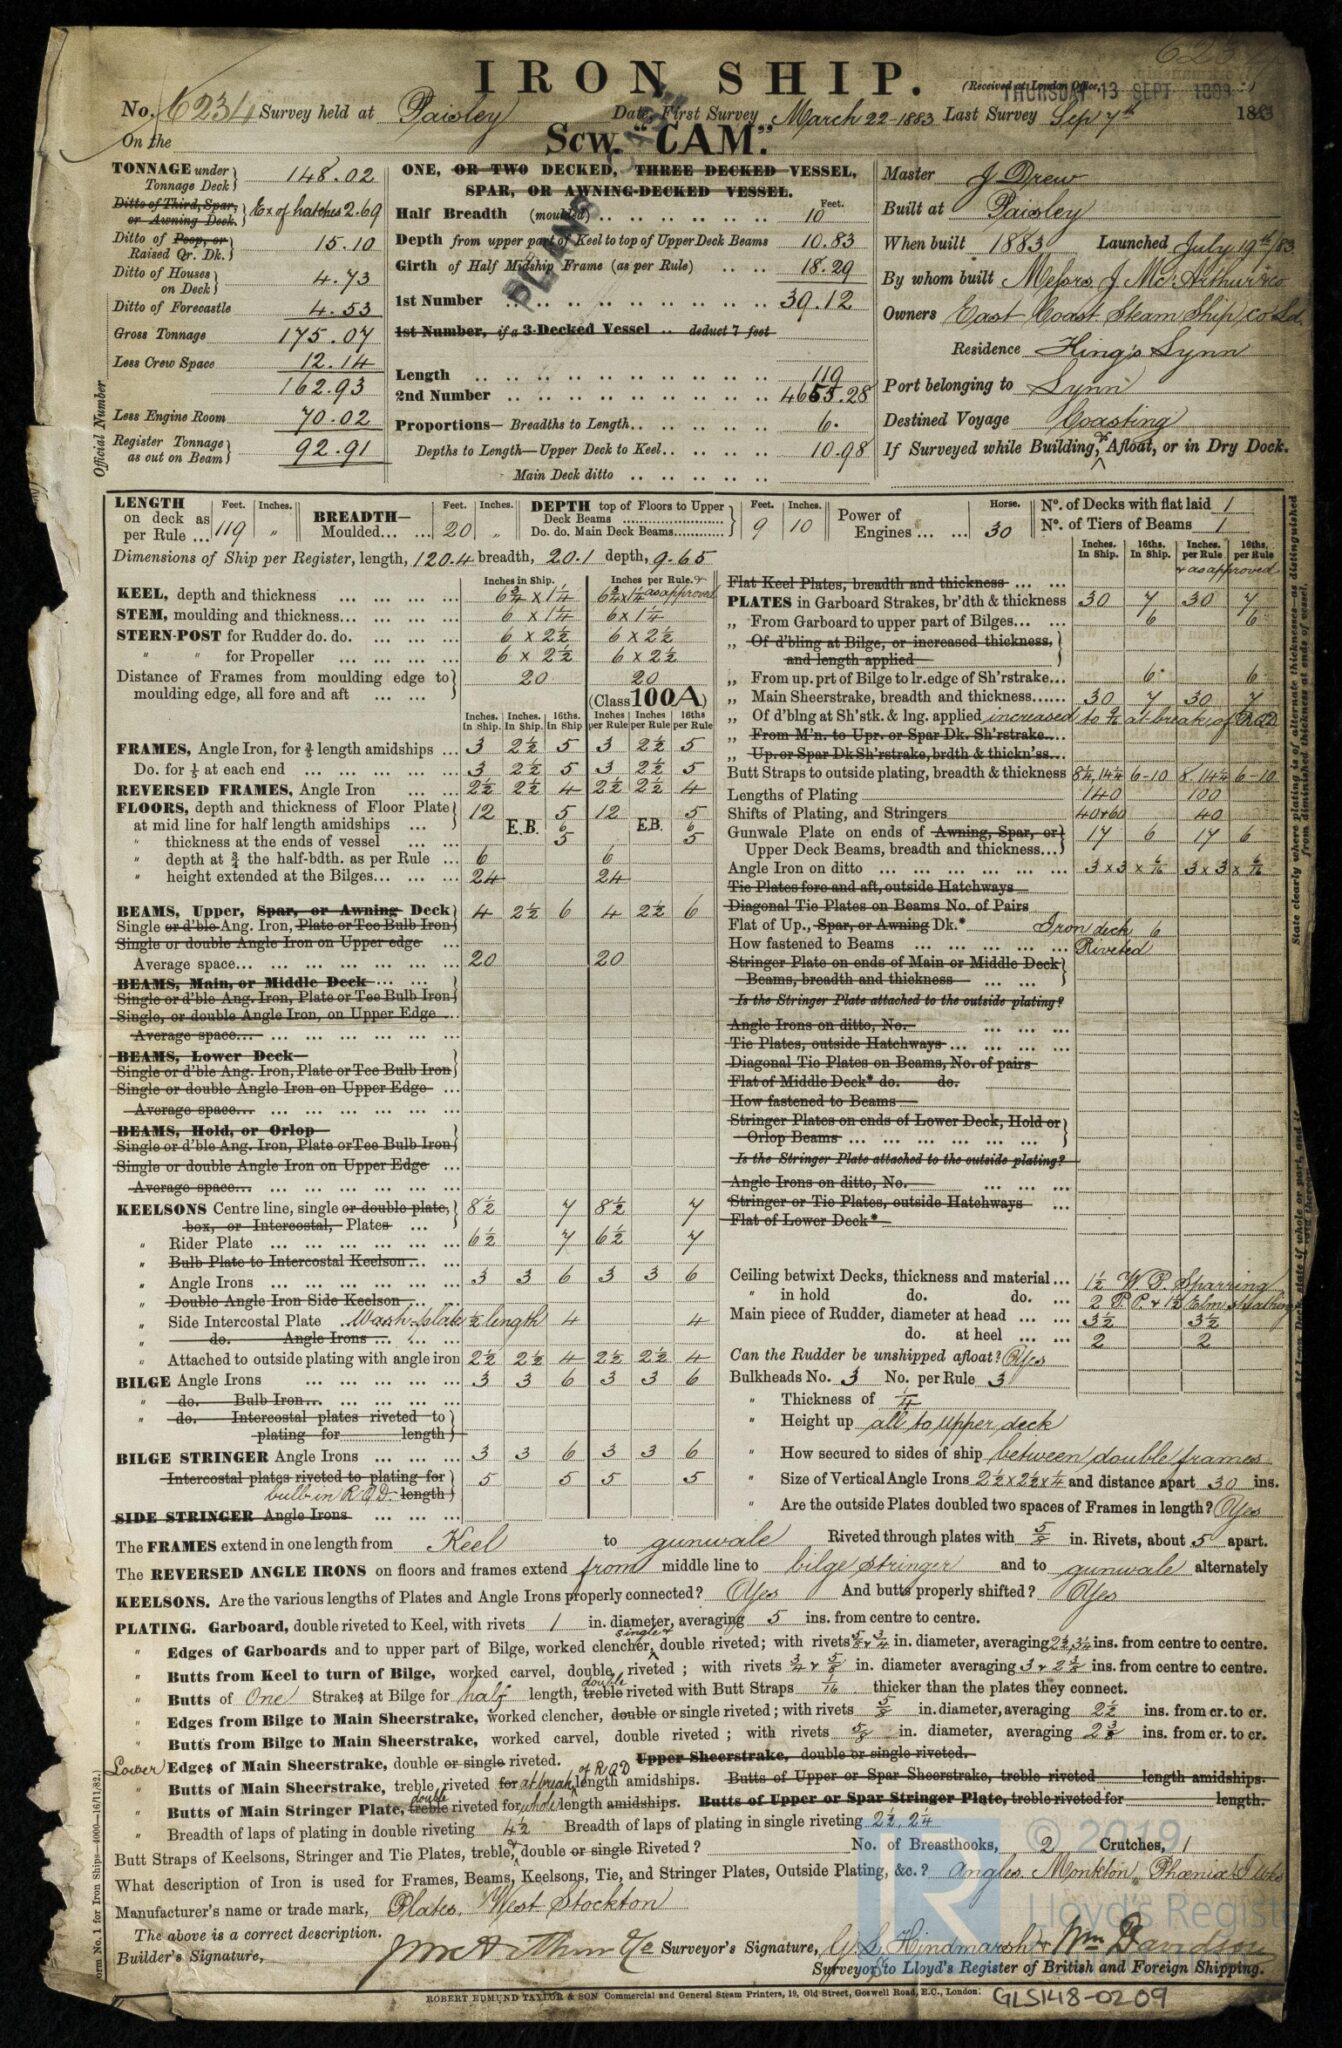 6234
IRON SHIP.
(Received at London Office,
THURSDAY 13 SEPT 1883
No. 6234 Survey held at Paisley Date, First Survey March 22-1883 Last Survey Sep 7th 1883
On the Scw. "CAM."
PLANS
TONNAGE under Tonnage Deck } 148.02
Ditto of Third, Spar, or Awning Deck. } Ex of hatches 2.69
Ditto of Poop, or Raised Qr. Dk. } 15.10
Ditto of Houses on Deck } 4.73
Ditto of Forecastle 4.53
Gross Tonnage 175.07
Less Crew Space 12.14
162.93
Less Engine Room 70.02
Register Tonnage as cut on Beam } 92.91
Official Number
ONE, OR TWO DECKED, THREE DECKED VESSEL,
SPAR, OR AWNING-DECKED VESSEL.
Feet.
Half Breadth (moulded) 10
Depth from upper part of Keel to top of Upper Deck Beams 10.83
Girth of Half Midship Frame (as per Rule) 18.29
1st Number 39.12
1st Number, if a 3-Decked Vessel deduct 7 feet
Length 119
2nd Number 4655.28
Proportions— Breadths to Length 6.
Depths to Length—Upper Deck to Keel 10.98
Main Deck ditto
Master J Drew
Built at Paisley
When built 1883 Launched July 19th/83
By whom built Messrs J McArthur & Co
Owners East Coast Steam Ship Co Ld.
Residence King's Lynn
Port belonging to Lynn
Destined Voyage Coasting
If Surveyed while Building, & Afloat, or in Dry Dock.
LENGTH on deck as per Rule 119 Feet. " Inches. BREADTH— Moulded 20 Feet. " Inches. DEPTH top of Floors to Upper Deck Beams 9 Feet. 10 Inches. Do. do. Main Deck Beams Power of Engines 30 Horse. No. of Decks with flat laid 1
No. of Tiers of Beams 1
Dimensions of Ship per Register, length, 120.4 breadth, 20.1 depth, 9.65
Inches in Ship. Inches per Rule. & as approved
KEEL, depth and thickness 6 3/4 x 1 1/4 6 3/4 x 1 1/4
STEM, moulding and thickness 6 x 1 1/4 6 x 1 1/4
STERN-POST for Rudder do. do. 6 x 2 1/2 6 x 2 1/2
" " for Propeller 6 x 2 1/2 6 x 2 1/2
Distance of Frames from moulding edge to moulding edge, all fore and aft } 20 20
(Class 100A)
Inches. In Ship. Inches. In Ship. 16ths In Ship Inches per Rule Inches per Rule 16ths per Rule
FRAMES, Angle Iron, for 3/5 length amidships 3 2 1/2 5 3 2 1/2 5
Do. for 1/5 at each end 3 2 1/2 5 3 2 1/2 5
REVERSED FRAMES, Angle Iron 2 1/2 2 1/2 4 2 1/2 2 1/2 4
FLOORS, depth and thickness of Floor Plate at mid line for half length amidships } 12 5 12 5
E.B. 6 E.B. 6
" thickness at the ends of vessel 5 5
" depth at 3/4 the half-bdth. as per Rule 6 6
" height extended at the Bilges 24 24
BEAMS, Upper, Spar, or Awning Deck 4 2 1/2 6 4 2 1/2 6
Single or d'ble Ang. Iron, Plate or Tee Bulb Iron
Single or double Angle Iron on Upper edge
Average space 20 20
BEAMS, Main, or Middle Deck
Single or d'ble Ang. Iron, Plate or Tee Bulb Iron
Single, or double Angle Iron, on Upper Edge
Average space
BEAMS, Lower Deck
Single or d'ble Ang. Iron, Plate or Tee Bulb Iron
Single or double Angle Iron on Upper Edge
Average space
BEAMS, Hold, or Orlop
Single or d'ble Ang. Iron, Plate or Tee Bulb Iron
Single or double Angle Iron on Upper Edge
Average space
KEELSONS Centre line, single or double plate, box, or Intercostal, Plates 8 1/2 7 8 1/2 7
" Rider Plate 6 1/2 7 6 1/2 7
" Bulb Plate to Intercostal Keelson
" Angle Irons 3 3 6 3 3 6
" Double Angle Iron Side Keelson
" Side Intercostal Plate Wash plate 1/2 length 4 4
" do. Angle Irons
" Attached to outside plating with angle iron 2 1/2 2 1/2 4 2 1/2 2 1/2 4
BILGE Angle Irons 3 3 6 3 3 6
" do. Bulb Iron
" do. Intercostal plates riveted to plating for length
BILGE STRINGER Angle Irons 3 3 6 3 3 6
Intercostal plates riveted to plating for length } 5 5 5 5
bulb in R Q D
SIDE STRINGER Angle Irons
Inches. In Ship. 16ths. In Ship. Inches. per Rule 16ths. per Rule
& as approved
Flat Keel Plates, breadth and thickness
PLATES in Garboard Strakes, br'dth & thickness 30 7 30 7
" From Garboard to upper part of Bilges 6 6
" Of d'bling at Bilge, or increased thickness, and length applied
" From up. prt of Bilge to lr. edge of Sh'rstrake 6 6
" Main Sheerstrake, breadth and thickness 30 7 30 7
" Of d'blng at Sh'stk. & lng. applied increased to 9/16 at break of RQD
" From M'n. to Upr. or Spar Dk. Sh'rstrake
" Up. or Spar Dk Sh'rstrake, brdth & thickn'ss
Butt Straps to outside plating, breadth & thickness 8 1/4, 14 1/4 6-10 8. 14 1/4 6-10
Lengths of Plating 140 100
Shifts of Plating, and Stringers 40 & 60 40
Gunwale Plate on ends of Awning, Spar, or Upper Deck Beams, breadth and thickness 17 6 17 6
Angle Iron on ditto 3 x 3 x 6/16 3 x 3 x 6/16
Tie Plates fore and aft, outside Hatchways
Diagonal Tie Plates on Beams No. of Pairs
Flat of Up., Spar, or Awning Dk.* Iron deck 6
How fastened to Beams Riveted
Stringer Plate on ends of Main or Middle Deck Beams, breadth and thickness
Is the Stringer Plate attached to the outside plating?
Angle Irons on ditto, No.
Tie Plates, outside Hatchways
Diagonal Tie Plates on Beams, No. of pairs
Flat of Middle Deck* do. do.
How fastened to Beams
Stringer Plates on ends of Lower Deck, Hold or Orlop Beams
Is the Stringer Plate attached to the outside plating?
Angle Irons on ditto, No.
Stringer or Tie Plates, outside Hatchways
Flat of Lower Deck*
Ceiling betwixt Decks, thickness and material 1 1/2 W. P. Sparring
" in hold do. do. 2 P. P. & 1 1/2 Elm sheathing
Main piece of Rudder, diameter at head 3 1/2 3 1/2
do. at heel 2 2
Can the Rudder be unshipped afloat? Yes
Bulkheads No. 3 No. per Rule 3
" Thickness of 1/4
" Height up all to upper deck
" How secured to sides of ship between double frames
" Size of Vertical Angle Irons 2 1/2 x 2 1/2 x 1/4 and distance apart 30 ins.
" Are the outside Plates doubled two spaces of Frames in length? Yes
State clearly where plating is of alternate thicknesses—as distinguished from diminished thickness at ends of vessel.
The FRAMES extend in one length from Keel to gunwale Riveted through plates with 5/8 in. Rivets, about 5 apart.
The REVERSED ANGLE IRONS on floors and frames extend from middle line to bilge stringer and to gunwale alternately
KEELSONS. Are the various lengths of Plates and Angle Irons properly connected? Yes And butts properly shifted? Yes
PLATING. Garboard, double riveted to Keel, with rivets 1 in. diameter, averaging 5 ins. from centre to centre.
" Edges of Garboards and to upper part of Bilge, worked clencher, single & double riveted; with rivets 5/8 & 3/4 in. diameter, averaging 2 1/2, 3 1/4 ins. from centre to centre.
" Butts from Keel to turn of Bilge, worked carvel, double riveted; with rivets 3/4 & 5/8 in. diameter averaging 3 & 2 3/8 ins. from centre to centre.
" Butts of One Strakes at Bilge for half length, treble double riveted with Butt Straps 1/16 thicker than the plates they connect.
" Edges from Bilge to Main Sheerstrake, worked clencher, double or single riveted; with rivets 5/8 in. diameter, averaging 2 1/2 ins. from cr. to cr.
" Butts from Bilge to Main Sheerstrake, worked carvel, double riveted; with rivets 5/8 in. diameter, averaging 2 3/8 ins. from cr. to cr.
Lower Edges of Main Sheerstrake, double or single riveted. Upper Sheerstrake, double or single riveted.
" Butts of Main Sheerstrake, treble riveted for at break of RQD length amidships. Butts of Upper or Spar Sheerstrake, treble riveted length amidships.
" Butts of Main Stringer Plate, treble double riveted for whole length amidships. Butts of Upper or Spar Stringer Plate, treble riveted for length.
" Breadth of laps of plating in double riveting 4 1/2 Breadth of laps of plating in single riveting 2 1/2, 2 1/4
Butt Straps of Keelsons, Stringer and Tie Plates, treble, & double or single Riveted? No. of Breasthooks, 2 Crutches, 1
What description of Iron is used for Frames, Beams, Keelsons, Tie, and Stringer Plates, Outside Plating, &c.? Angles Monkton, Phœnix
Manufacturer's name or trade mark, Plates, West Stockton
The above is a correct description.
Builder's Signature, J McArthur & Co Surveyor's Signature, G. S. Hindmarsh & Wm Davidson
Surveyor to Lloyd's Register of British and Foreign Shipping.
Form No. 1 for Iron Ships—4000—16/11/82.
ROBERT EDMUND TAYLOR & SON Commercial and General Steam Printers, 19, Old Street, Goswell Road, E.C., London.
GLS148-0209
© 2019
Lloyd's Register